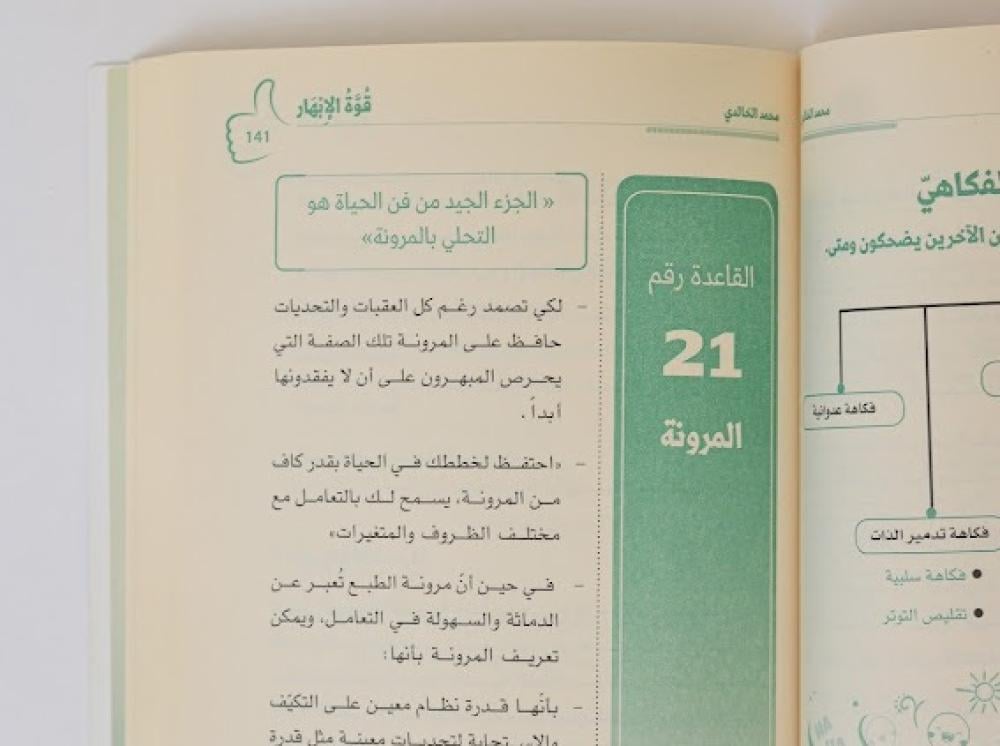 محمد الخالدي
لفكاهيّ
الآخرين يضحكون ومتى
فكاهة عدوانية
فكاهة تدمير الذات
فكاهة سلبية
تقليص التوتر
محمد الخالدي
قُوَّةُ الإِبْهَار
141
القاعدة رقم
21
المرونة
« الجزء الجيد من فن الحياة هو
التحلي بالمرونة»
- لكي تصمد رغم كل العقبات والتحديات
حافظ على المرونة تلك الصفة التي
يحرص المبهرون على أن لا يفقدونها
أبداً .
- «احتفظ لخططك في الحياة بقدر كاف
من المرونة، يسمح لك بالتعامل مع
مختلف الظروف والمتغيرات»
- في حين أنّ مرونة الطبع تُعبر عن
الدماثة والسهولة في التعامل، ويمكن
تعريف المرونة بأنها:
- بأنّها قدرة نظام معين على التكيّف
والاستجابة لتحديات معينة مثل قدرة